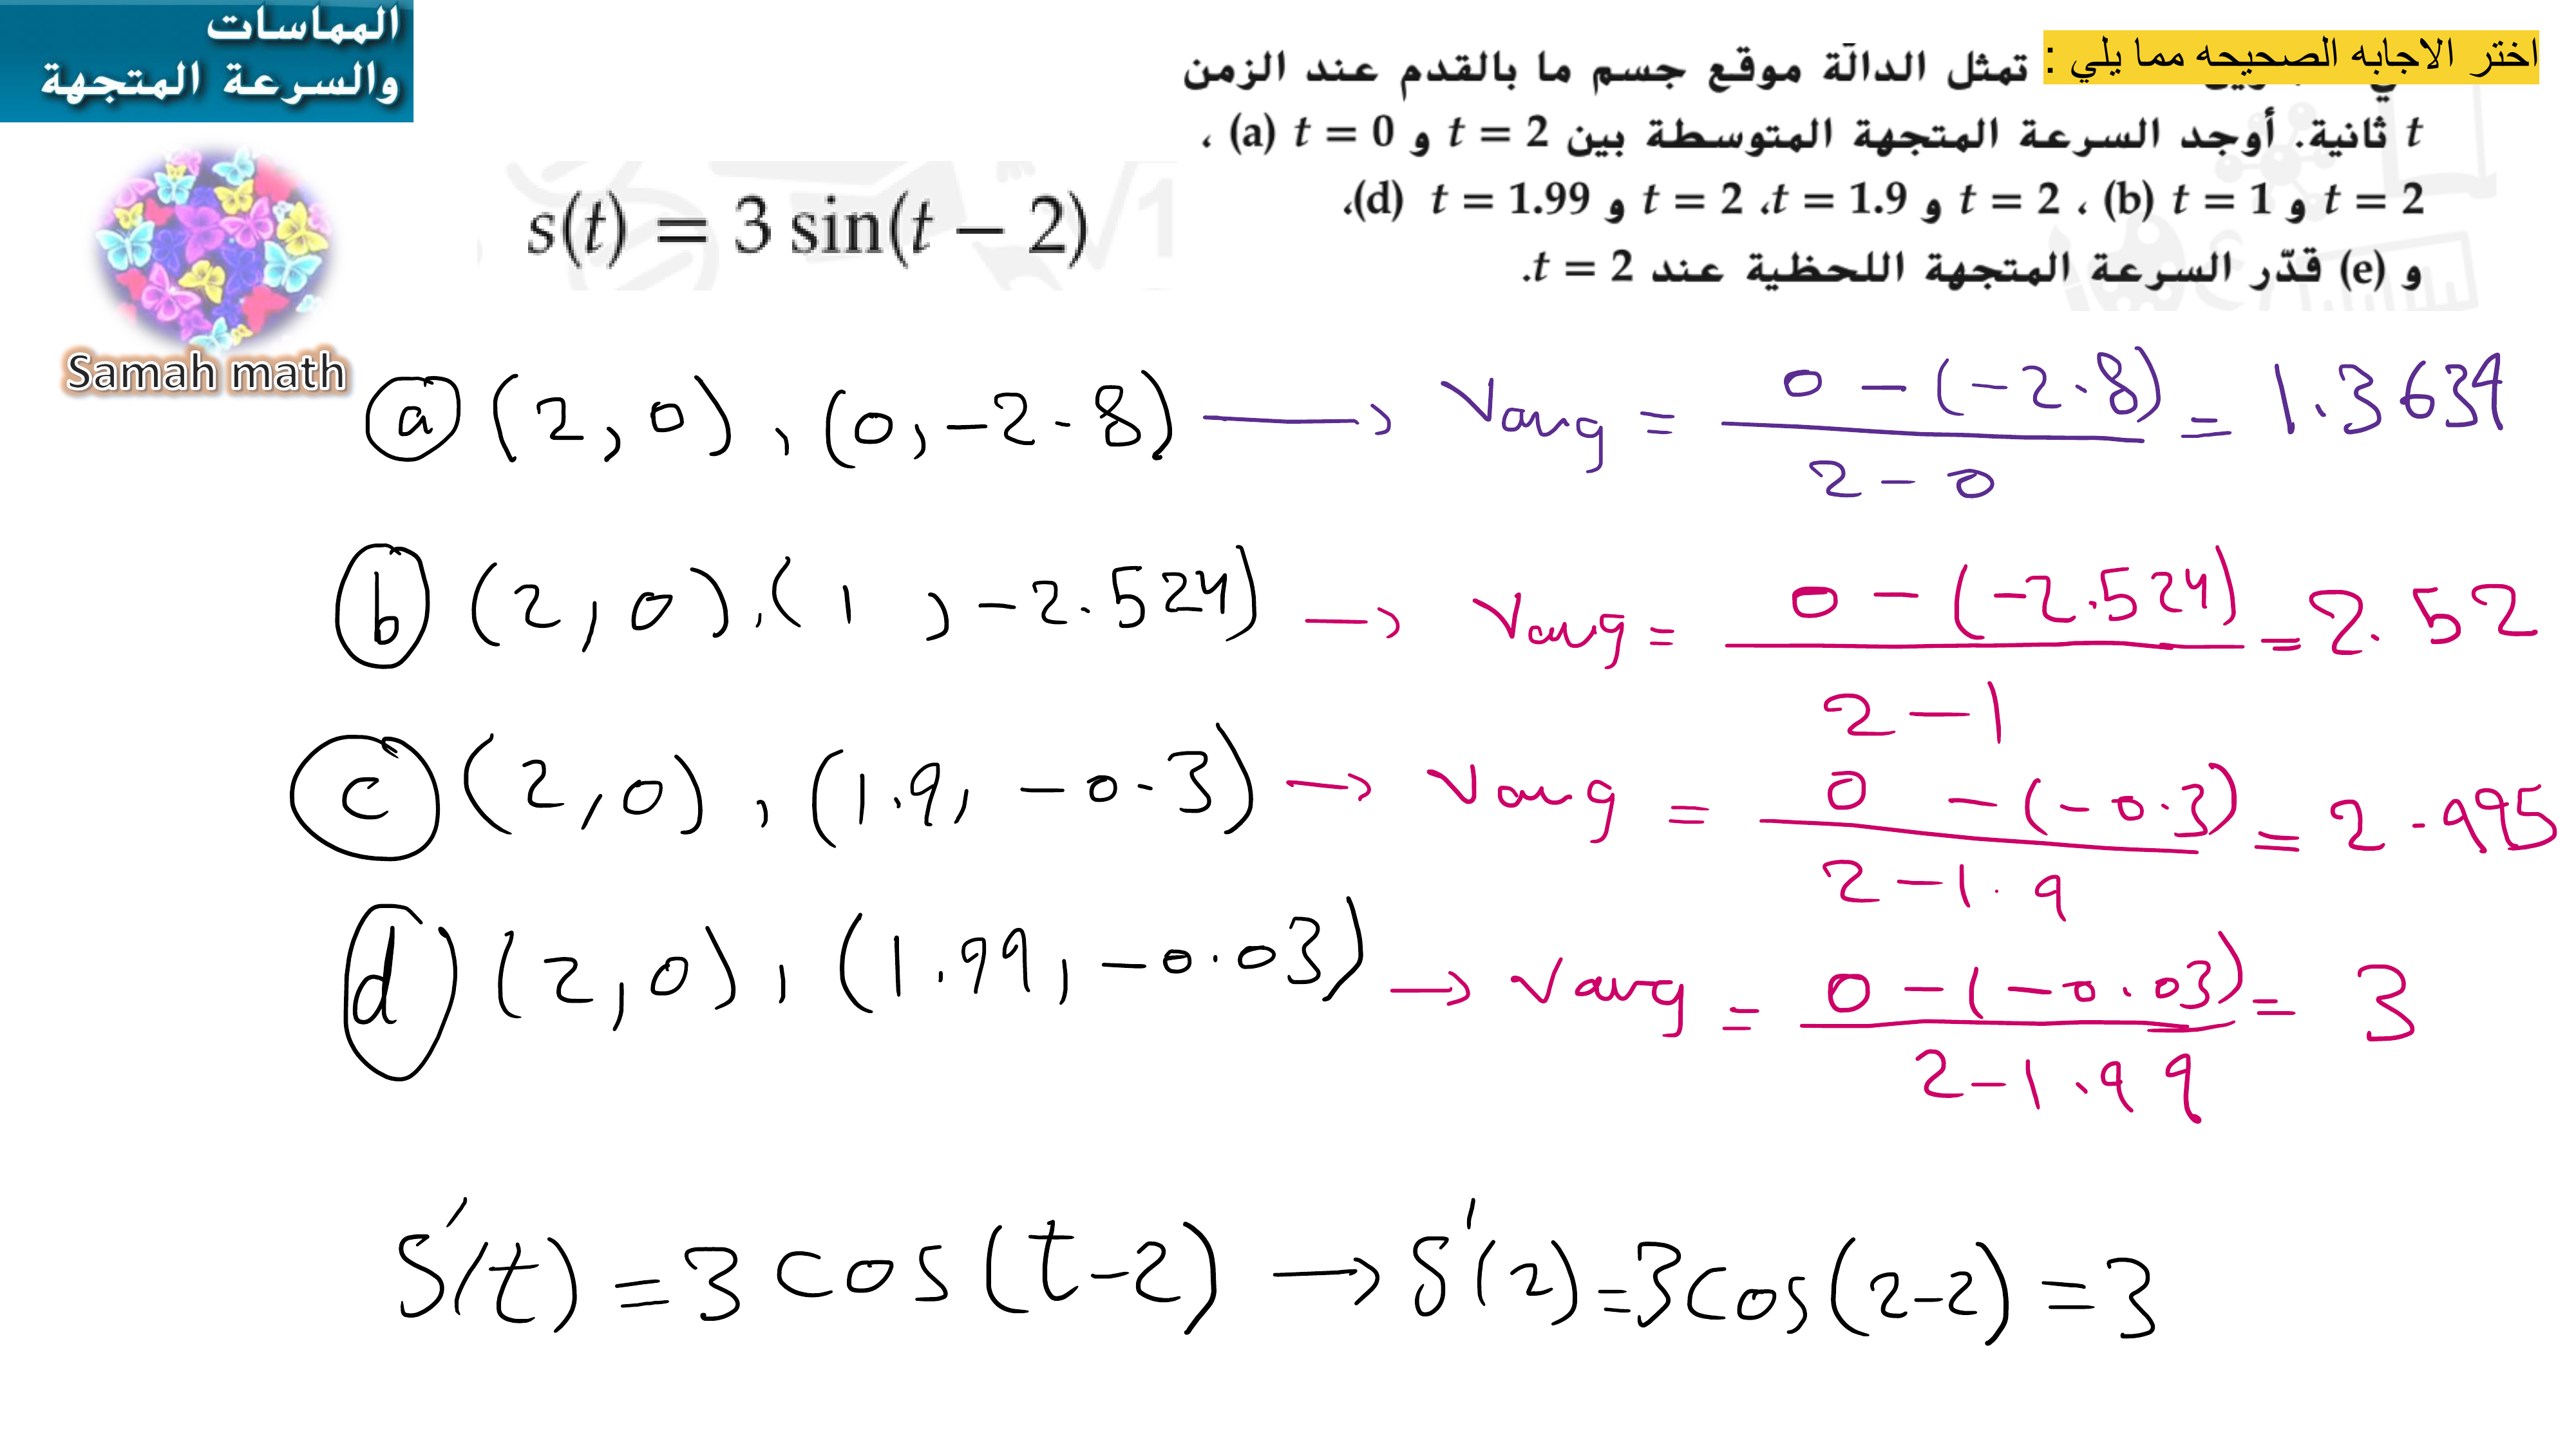 المماسات
والسرعة المتجهة
Samah math
اختر الاجابه الصحيحه مما يلي :
تمثل الدالّة موقع جسم ما بالقدم عند الزمن
t ثانية. أوجد السرعة المتجهة المتوسطة بين t = 2 و t = 0 (a) ،
t = 2 و t = 1 (b) ، t = 2 و t = 1.9، t = 2 و t = 1.99 (d)،
و (e) قدّر السرعة المتجهة اللحظية عند t = 2.
s(t) = 3 sin(t − 2)
a (2,0), (0,-2.8) → Vavg = 0-(-2.8) / 2-0 = 1.3639
b (2,0), (1,-2.524) → Vavg = 0-(-2.524) / 2-1 = 2.52
c (2,0), (1.9,-0.3) → Vavg = 0-(-0.3) / 2-1.9 = 2.995
d (2,0), (1.99,-0.03) → Vavg = 0-(-0.03) / 2-1.99 = 3
S'(t) = 3 cos(t-2) → S'(2) = 3cos(2-2) = 3